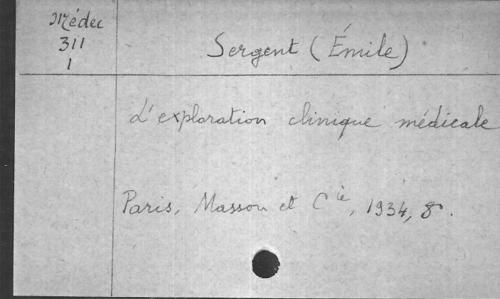 Médec
311
1
Sergent (Émile)
L'exploration clinique médicale
Paris, Masson et Cie, 1934, 8°.